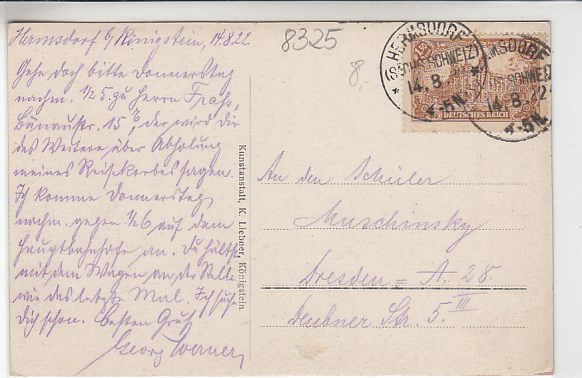 Hermsdorf b/ Königstein, 14.8.22
Gehe doch bitte Donnerstag
nachm. ½5 zu Herrn
Bünaustr. 15 der wird Dir
das Weitere über Abholung
meines Reisekorbes sagen.
Ich komme Donnerstag
nachm. gegen ½6 auf dem
Hauptbahnhofe an. Du hältst
mit dem Wagen an der Stelle
wie das letzte Mal. Ich suche
Dich schon. Besten Gruß
Georg Werner
8325
8.
HERMSDORF
(SÄCHS. SCHWEIZ)
14. 8.
4-5N.
HERMSDORF
(SÄCHS. SCHWEIZ)
14. 8. 22
4-5N.
DEUTSCHES REICH
Kunstanstalt, K. Liebner, Königstein
An den Schüler
Muschinsky
Dresden - A. 28
Deubner Str. 5. III